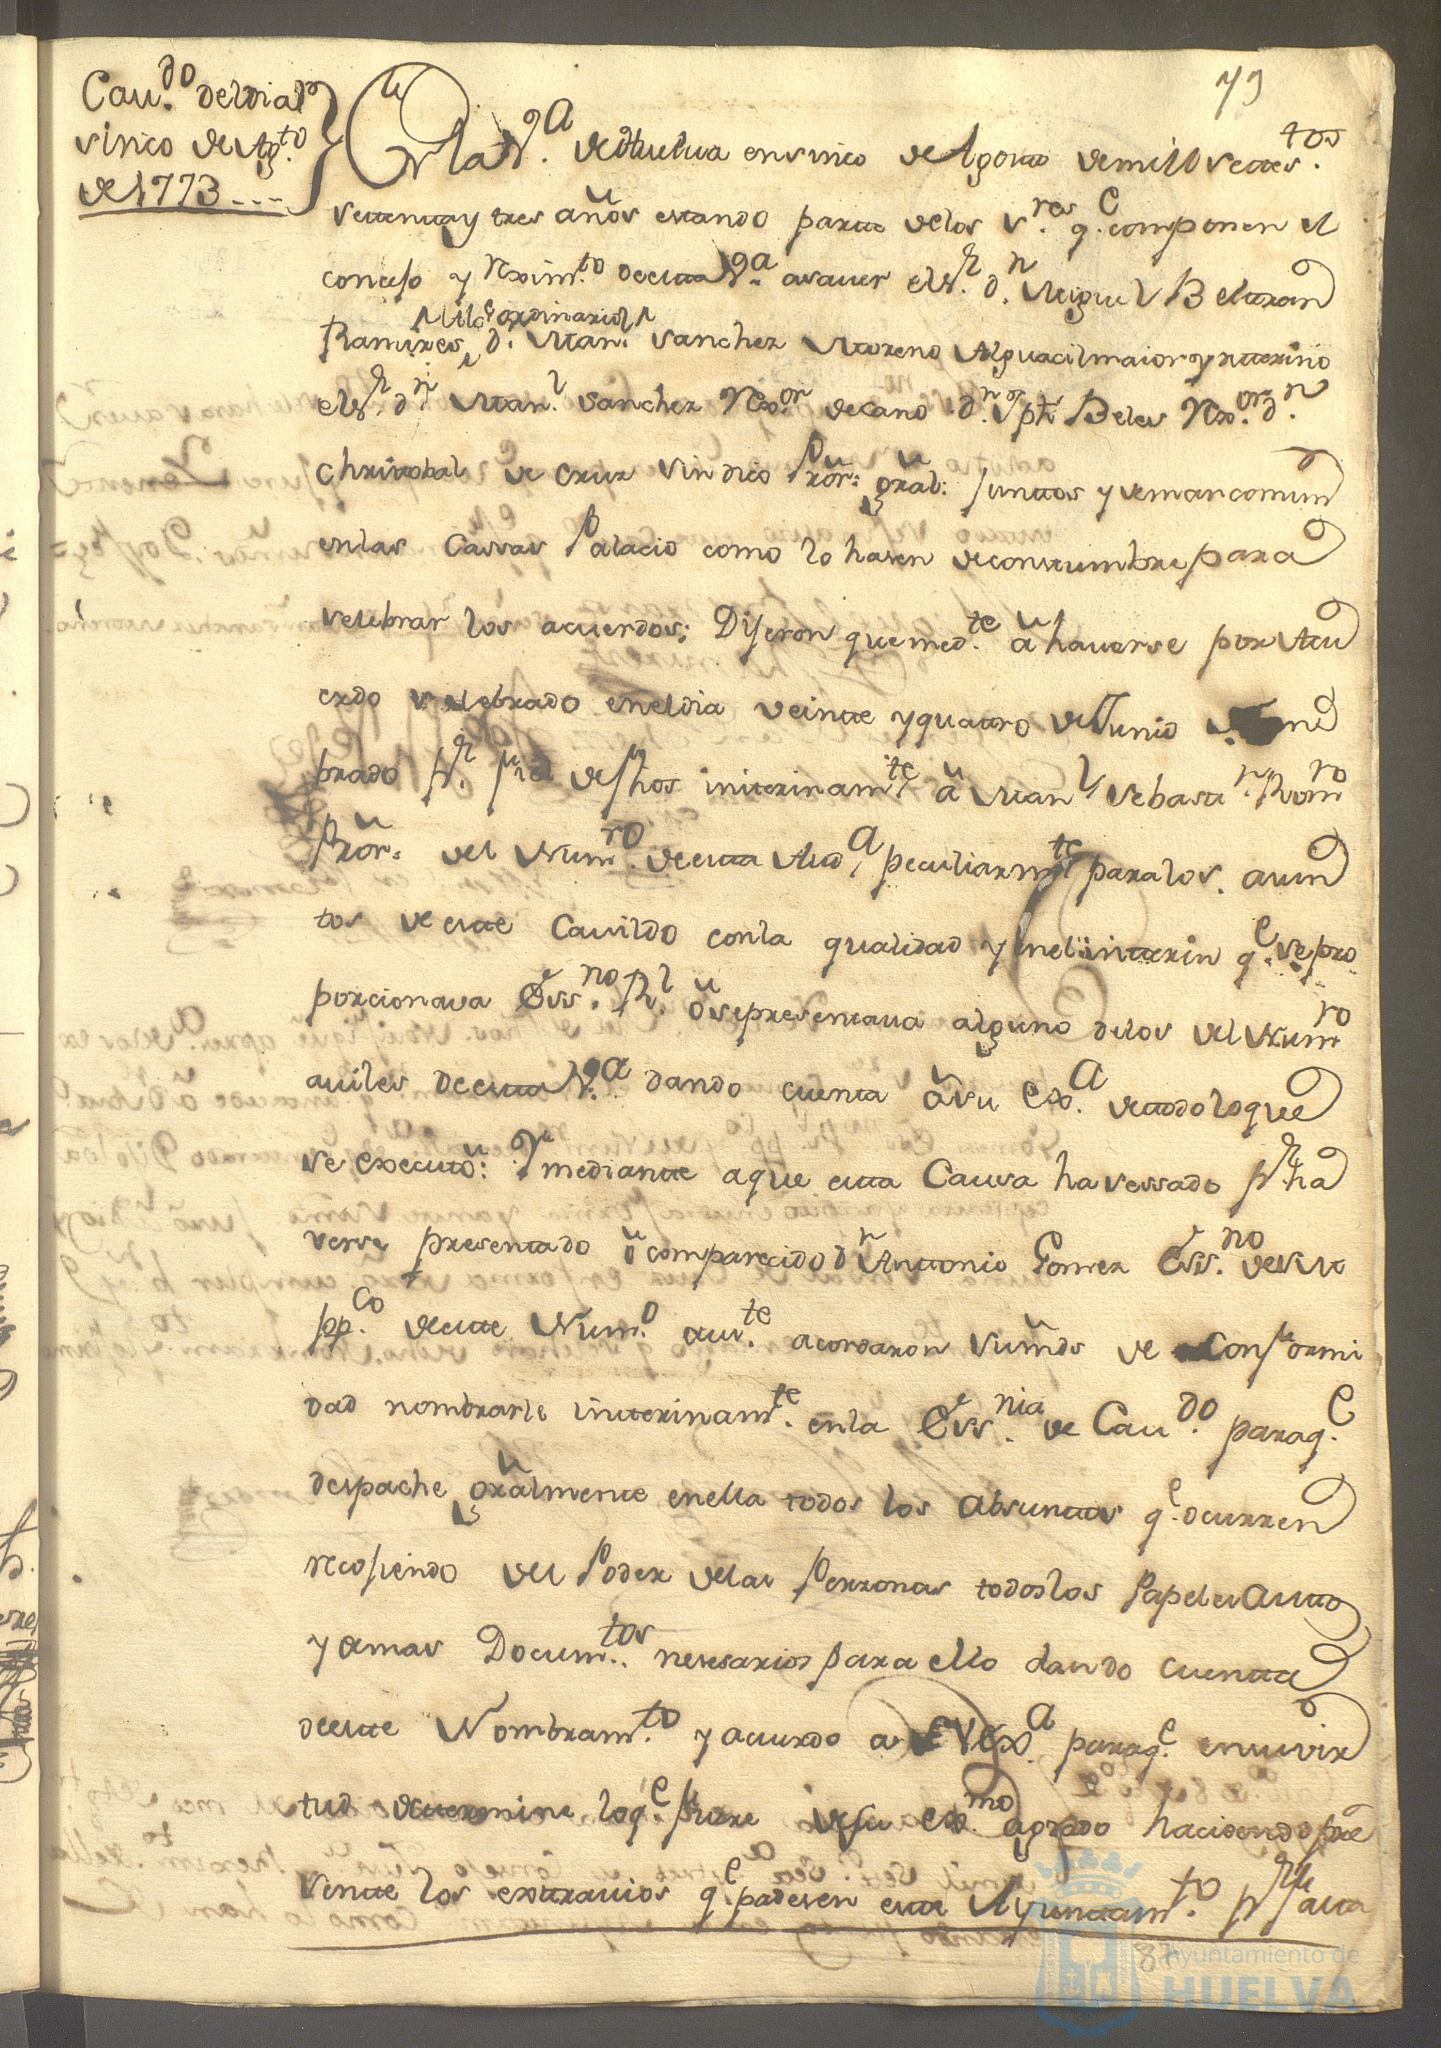 79
Cau.do del dia
sinco de Ag.to
de 1773 ....
En la V.a de Huelua en sinco de Agosto de mill setes.tos
settenta y tres años estando parte de los S.res q.e componen el
consejo y Rexim.to de esta V.a asauer el S.r d.n Miguel Beltran
Ramires, d.n Man.l Sanchez Moreno Alguacil maior y ntterino
Alc.e ordinarios
el S.r d.n Man.l Sanchez Rex.or decano d.n Jph Beles Rex.or d.n
Christobal de Cruz Sindico Pror. gral: Junttos y de mancomun
en las Cassas Palacio como lo hasen de constumbre para
selebrar los acuerdos; Dijeron que med.te a hauerse por Acu
erdo selebrado en el dia veinte y quatro de Junio nom
brado p.r fiel de fhos interinam.te a Man.l Sebast.n Rom.ro
Pror. del Num.ro de esta Aud.a peculiarm.te para los asun
tos de este Cauildo con la qualidad y en el intterin q.e se pro
porcionaua Ess.no R.l o se presentaua alguno de los del Num.ro
auiles de esta V.a dando cuenta a su Ex.a de todo lo que
se executo: Y mediante a que esta Causa ha sessado p.r ha
verse presentado o comparecido d.n Anttonio Gomez Ess.no de su M
pp.co de este Num.o aus.te acordaron sus mds de conformi
dad nombrarle intterinam.te en la Ess.nia de Cau.do para q.e
despache gralmente en ella todos los absunttos q.e ocurren
recojiendo del Poder de las Perzonas todos los Papeles Autto
y demas Docum.tos nesesarios para ello dando cuentta
de este Nombram.to y acuerdo a S Ex.a para q.e en su vir
tud determine lo q.e fuere de su ex.mo agrado haciendo pre
sente los extrauios q.e padesen este Ayunttam.to p.r falta
87
Ayuntamiento de
HUELVA